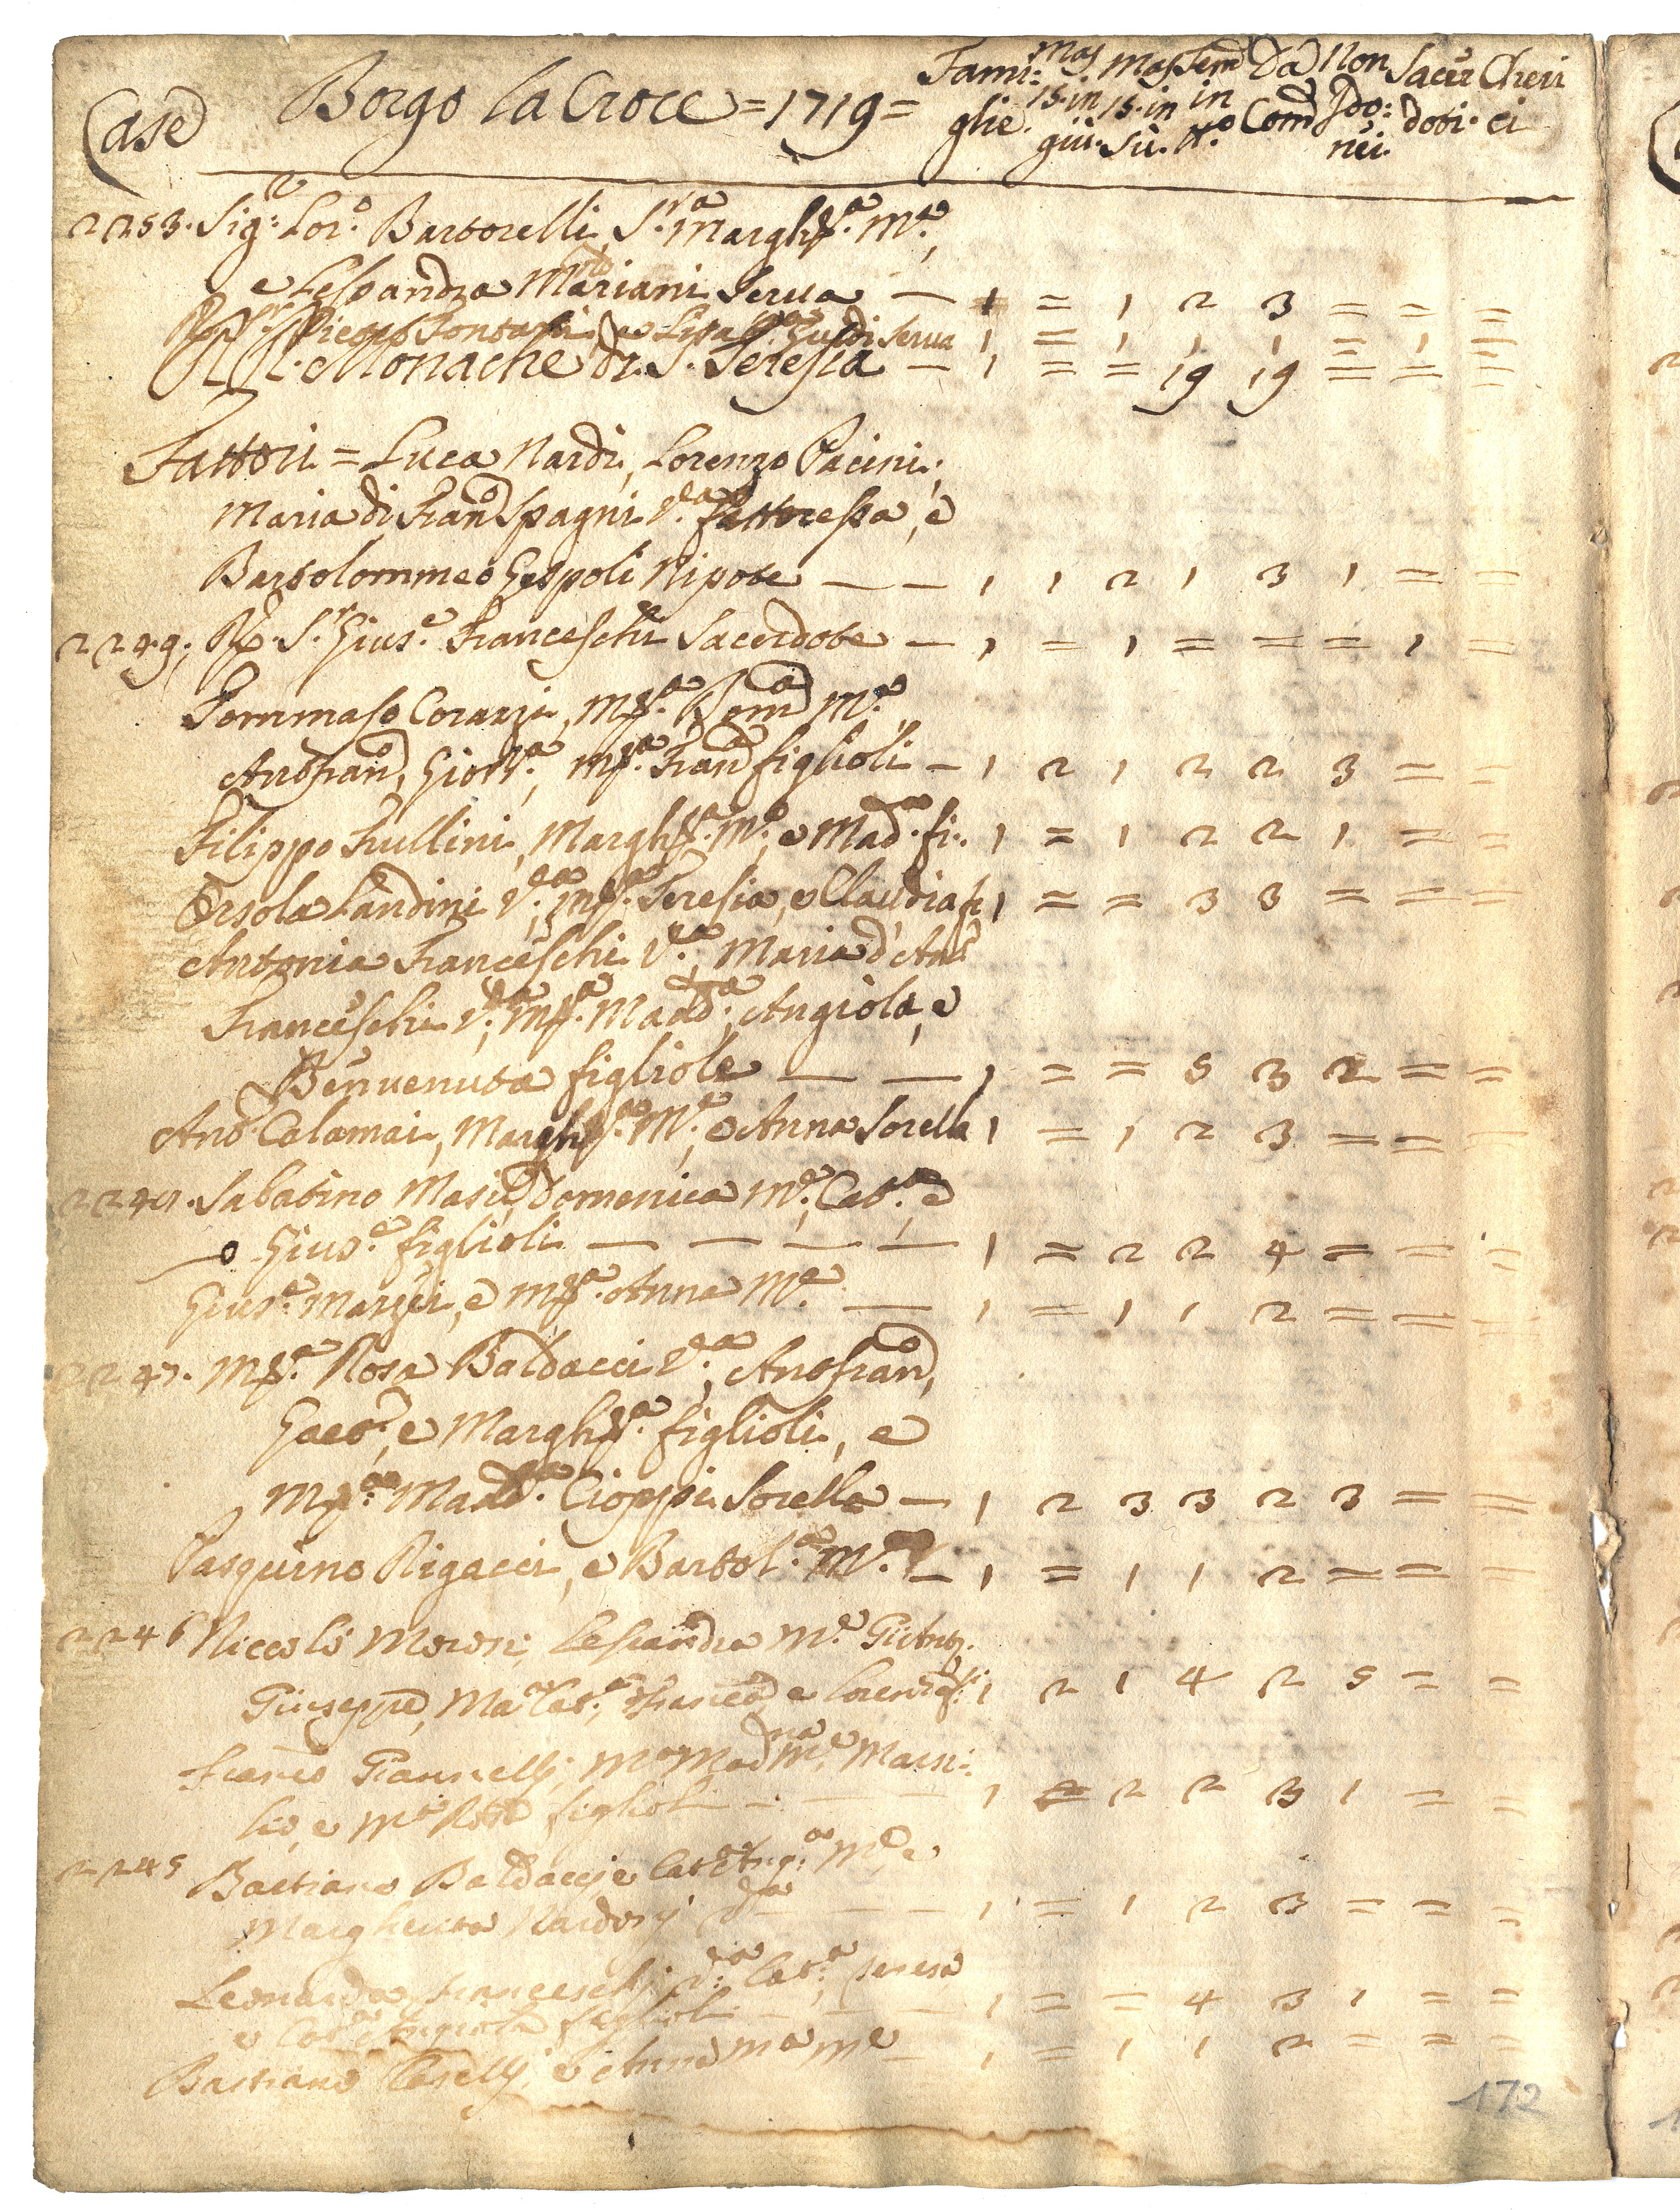 Case Borgo la Croce = 1719 = Fami: glie. Mas. 15. in giù. Mas. 15. in sù. Fem in N.o Da Com Non Ido: nei. Sacer doti. Cheri ci
2253. Sig:r Lor.o Bartorelli, S.ra Margh.ta M.e,
e Lessandra Mariani Serua — 1 = 1 2 3 = = =
R. S.r Pietro Fontani, e Lisa Guidi Serua 1 = 1 1 1 = 1 =
RR. Monache di S. Teresia — 1 = = 19 19 = = =
Fattori = Luca Nardi, Lorenzo Pacini,
Maria di Fran.o Spagni V.a fattoressa, e
Bartolommeo Gespoli Nipote — — 1 1 2 1 3 1 = =
2249. R. S.r Gius.e Franceschi Sacerdote — 1 = 1 = = = 1 =
Tommaso Corazzi, M.a Dom.a M.e
Antofran.o, Giov.a, M.a Fran.a figlioli — 1 2 1 2 2 3 = =
Filippo Frullini, Margh.ta M.e, e Mad.a fi: 1 = 1 2 2 1 = =
Orsola Landini V.a, M.a Teresia, e Claudia fi 1 = = 3 3 = = =
Antonia Franceschi V.a, Maria d'Ant.o
Franceschi V.a, M.a Madd.a, Angiola, e
Benuenuta figliole — — 1 = = 5 3 2 = =
Ant.o Calamai, Margh.ta M.e, e Anna Sorella 1 = 1 2 3 = = =
2248. Sabatino Masi, Domenica M.e, Cat.a, e
Gius.e figlioli — — — — 1 = 2 2 4 = = =
Gius.e Marzii, e M.a Anna M.e — 1 = 1 1 2 = = =
2247. M.a Rosa Baldacci V.a, Antofran.o,
Gaet.o, e Margh.ta figlioli, e
M.a Madd.a Cioppi Sorella — 1 2 3 3 2 3 = =
Pasquino Rigacci, e Bartol.a M.e — 1 = 1 1 2 = = =
2246 Niccolò Morosi, Lesandra M.e Gi:Ant.o
Giuseppe, M.a Cat.a, Franc.a e Lorenz.a fi: 1 2 1 4 2 5 = =
Franc.o Giannelli, M.a Mad.na M.e Marsi:
lio, e M.a Rosa figlioli — — — 1 = 2 2 3 1 = =
2245 Bastiano Baldacci, e Cat.a Ang.a M.e, e
Margherita Nardosi V.a — — — 1 = 1 2 3 = = =
Leonarda Franceschi V.a Cat.a, Teresa
e Cat.a Angiola figlioli — — — 1 = = 4 3 1 = =
Bastiano Caselli, e Anna M.a M.e — 1 = 1 1 2 = = =
172